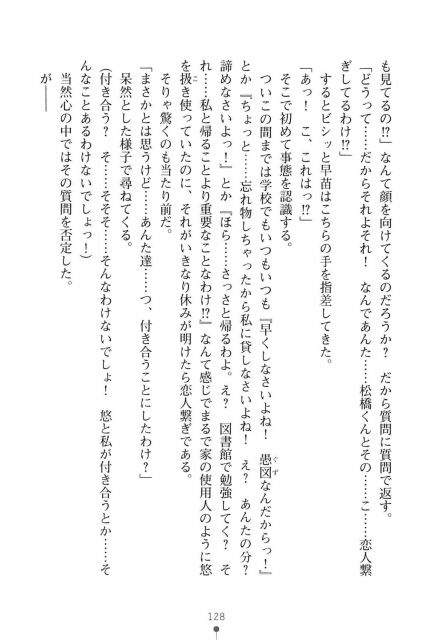 も見てるの!?」なんて顔を向けてくるのだろうか? だから質問に質問で返す。
「どうって……だからそれよそれ! なんであんた……松橋くんとその……こ……恋人繋
ぎしてるわけ!?」
するとビシッと早苗はこちらの手を指差してきた。
「あっ! こ、これはっ!?」
そこで初めて事態を認識する。
ついこの間までは学校でもいつもいつも『早くしなさいよね! 愚図なんだからっ!』
ぐず
とか『ちょっと……忘れ物しちゃったから私に貸しなさいよね! え? あんたの分?
諦めなさいよっ!』とか『ほら……さっさと帰るわよ。え? 図書館で勉強してく? そ
れ……私と帰ることより重要なことなわけ!?』なんて感じでまるで家の使用人のように悠
を扱き使っていたのに、それがいきなり休みが明けたら恋人繋ぎである。
そりゃ驚くのも当たり前だ。
「まさかとは思うけど……あんた達……つ、付き合うことにしたわけ?」
呆然とした様子で尋ねてくる。
(付き合う? そ……そそそ……そんなわけないでしょ! 悠と私が付き合うとか……そ
んなことあるわけないでしょっ!)
当然心の中ではその質問を否定した。
が――
128